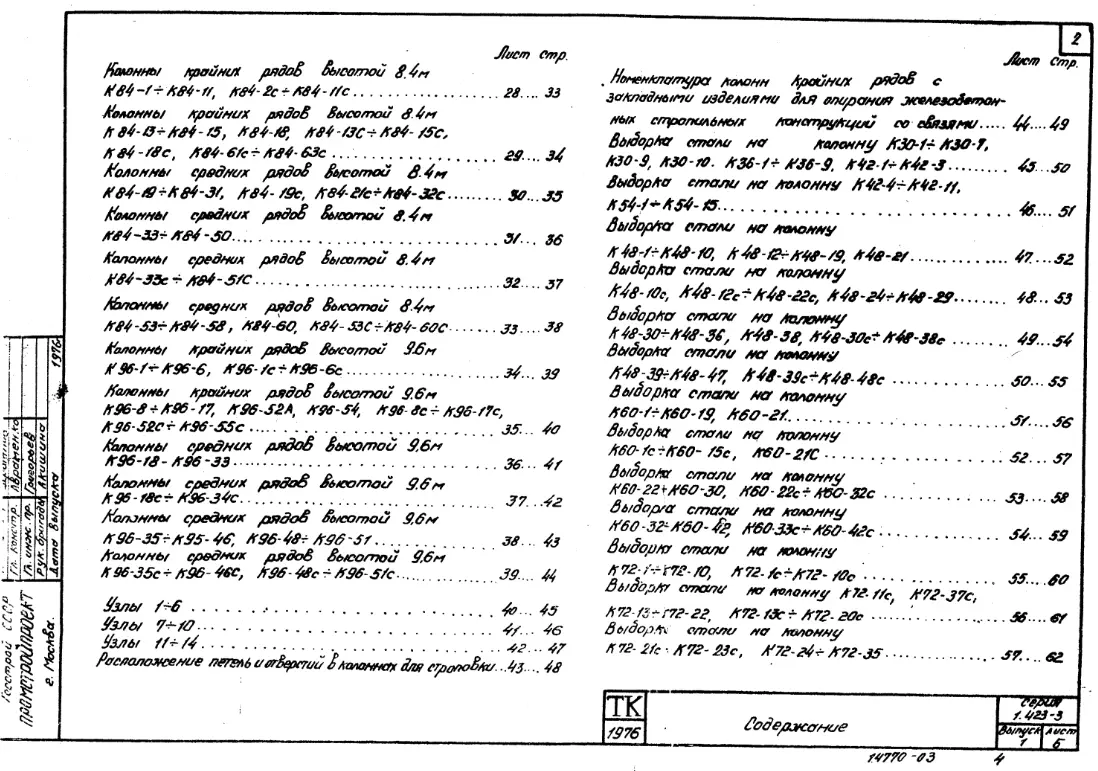 2
Лист Стр.
Колонны крайних рядов высотой 8.4м
К84-1÷К84-11, К84-2с÷К84-11с ... 28 ... 33
Колонны крайних рядов высотой 8.4м
К84-13÷К84-15, К84-18, К84-13С÷К84-15с,
К84-18с, К84-61с÷К84-63с ... 29 ... 34
Колонны средних рядов высотой 8.4м
К84-19÷К84-31, К84-19с, К84-21с÷К84-32с ... 30 ... 35
Колонны средних рядов высотой 8.4м
К84-33÷К84-50 ... 31 ... 36
Колонны средних рядов высотой 8.4м
К84-33с÷К84-51с ... 32 ... 37
Колонны средних рядов высотой 8.4м
К84-53÷К84-58, К84-60, К84-53С÷К84-60С ... 33 ... 38
Колонны крайних рядов высотой 9.6м
К96-1÷К96-6, К96-1с÷К96-6с ... 34 ... 39
Колонны крайних рядов высотой 9.6м
К96-8÷К96-17, К96-52А, К96-54, К96-8с÷К96-17с,
К96-52С÷К96-55с ... 35 ... 40
Колонны средних рядов высотой 9.6м
К96-18-К96-33 ... 36 ... 41
Колонны средних рядов высотой 9.6м
К96-18с÷К96-34с ... 37 ... 42
Колонны средних рядов высотой 9.6м
К96-35÷К95-46, К96-48÷К96-51 ... 38 ... 43
Колонны средних рядов высотой 9.6м
К96-35с÷К96-46С, К96-48с÷К96-51с ... 39 ... 44
Узлы 1÷6 ... 40 ... 45
Узлы 7÷10 ... 41 ... 46
Узлы 11÷14 ... 42 ... 47
Расположение петель и отверстий в колоннах для строповки ... 43 ... 48
Лист Стр.
Номенклатура колонн крайних рядов с
закладными изделиями для опирания железобетон-
ных стропильных конструкций со связями ... 44 ... 49
Выборка стали на колонну К30-1÷К30-7,
К30-9, К30-10. К36-1÷К36-9, К42-1÷К42-3 ... 45 ... 50
Выборка стали на колонну К42-4÷К42-11,
К54-1÷К54-15 ... 46 ... 51
Выборка стали на колонну
К48-1÷К48-10, К48-12÷К48-19, К48-21 ... 47 ... 52
Выборка стали на колонну
К48-10с, К48-12с÷К48-22с, К48-24÷К48-29 ... 48 ... 53
Выборка стали на колонну
К48-30÷К48-36, К48-38, К48-30с÷К48-38с ... 49 ... 54
Выборка стали на колонну
К48-39÷К48-47, К48-39с÷К48-48с ... 50 ... 55
Выборка стали на колонну
К60-1÷К60-19, К60-21 ... 51 ... 56
Выборка стали на колонну
К60-1с÷К60-15с, К60-21С ... 52 ... 57
Выборка стали на колонну
К60-22÷К60-30, К60-22с÷К60-32с ... 53 ... 58
Выборка стали на колонну
К60-32÷К60-42, К60-33с÷К60-42с ... 54 ... 59
Выборка стали на колонну
К72-1÷К72-10, К72-1с÷К72-10с ... 55 ... 60
Выборка стали на колонну К72-11с, К72-37с,
К72-13÷Г72-22, К72-13с÷К72-20с ... 56 ... 61
Выборка стали на колонну
К72-21с-К72-23с, К72-24÷К72-35 ... 57 ... 62
Госстрой СССР
ПРОМСТРОЙПРОЕКТ
г. Москва.
Гл. констр.
Гл. инж. пр. Григорьев
Рук. бригады Акишина
Дата выпуска 1976
ТК
1976
Содержание
Серия
1.423-3
Выпуск Лист
1 Б
14770-03 4